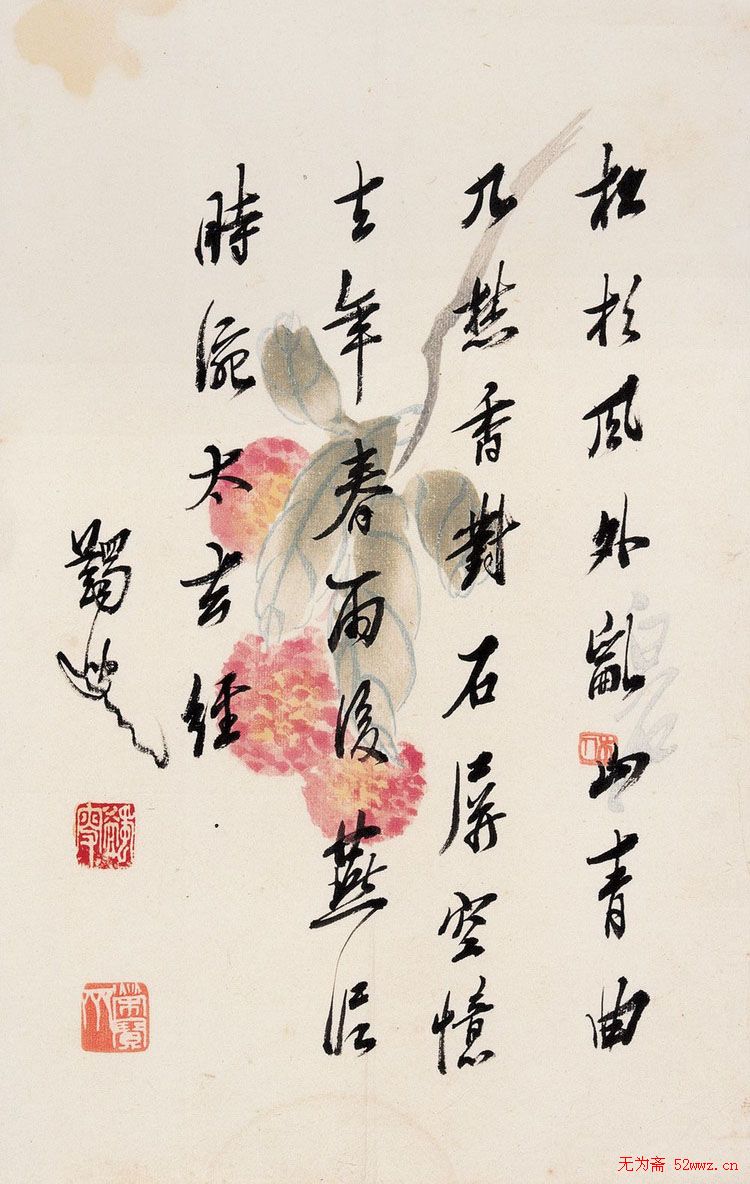 松杉風外亂山青曲
几焚香對石屏空憶
去年春雨後燕泥
時涴太玄經
蠲叟
白石
无为斋 52wwz.cn